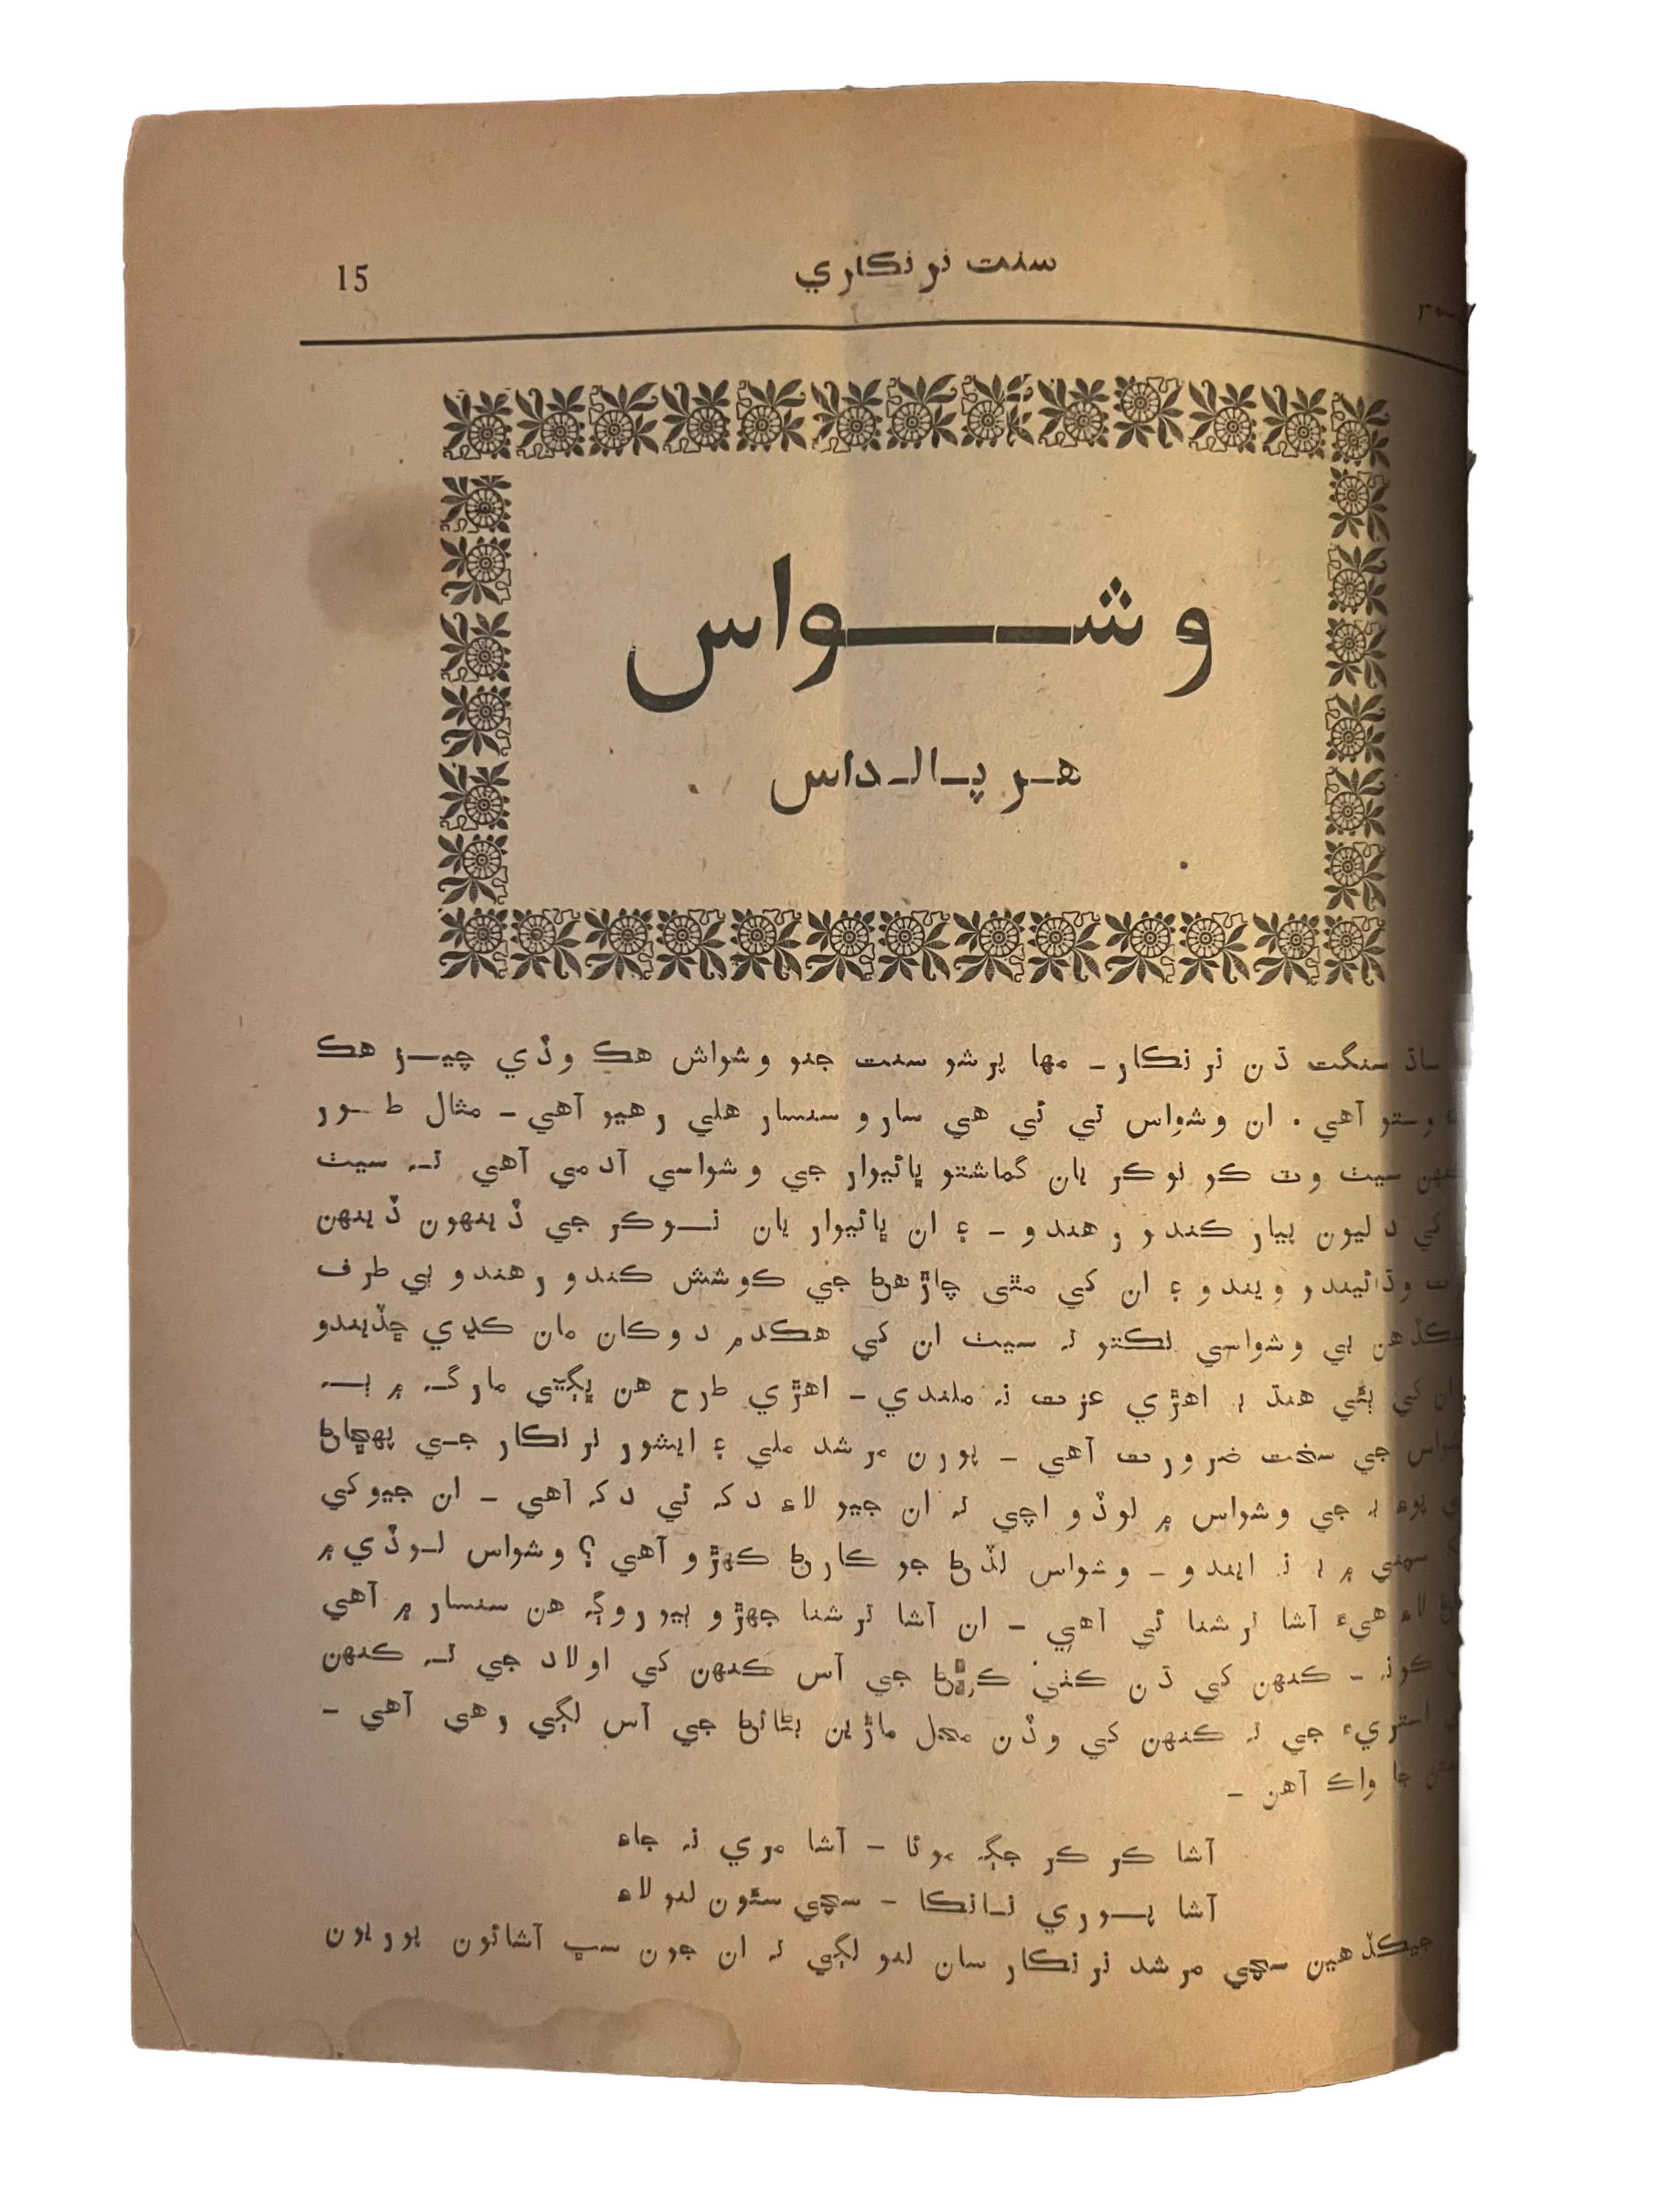 سنت نرنڪاري
15
وشواس
هرپالداس
ساڌ سنگت ڌن نرنڪار ــ مها پرشو سنت جنو وشواش هڪ وڏي چيز هڪ
وستو آهي . ان وشواس تي ئي هي سارو سنسار هلي رهيو آهي ــ مثال طور
ڪنهن سيٺ وٽ ڪو نوڪر يان گماشتو ڀائيوار جي وشواسي آدمي آهي ته سيٺ
کي دليون پيار ڪندو رهندو ــ ۽ ان ڀائيوار يان نوڪر جي ڏينهون ڏينهن
وڌائيندو ويندو ۽ ان کي مٿي چاڙهڻ جي ڪوشش ڪندو رهندو ٻي طرف
جيڪڏهن بي وشواسي نڪتو ته سيٺ ان کي هڪدم دوڪان مان ڪڍي ڇڏيندو
ان کي ٻئي هنڌ ۾ اهڙي عزت نه ملندي ــ اهڙي طرح هن ڀڳتي مارگ ۾ به
جي سخت ضرورت آهي ــ پورن مرشد ملي ۽ ايشور نرنڪار جي پهچاڻ
پوءِ به جي وشواس ۾ لوڏو اچي ته ان جيو لاءِ دک ئي دک آهي ــ ان جيو کي
۾ به نه ايندو ــ وشواس لڏڻ جو ڪارڻ ڪهڙو آهي ؟ وشواس لوڏي ۾
لاءِ هيءَ آشا ترشنا ئي آهي ــ ان آشا ترشنا جهڙو ٻيو روڳ هن سنسار ۾ آهي
ڪونه ــ ڪنهن کي ڌن ڪٺي ڪرڻ جي آس ڪنهن کي اولاد جي ته ڪنهن
استريءَ جي ته ڪنهن کي وڏن محل ماڙين بڻائڻ جي آس لڳي رهي آهي ــ
جا واڪ آهن ــ
آشا ڪر ڪر جڳ موئا ــ آشا مري نه جاءِ
آشا پوري نانڪا ــ سچي سئون لنو لاءِ
جيڪڏهين سچي مرشد نرنڪار سان لنو لڳي ته ان جون سڀ آشائون پوريون